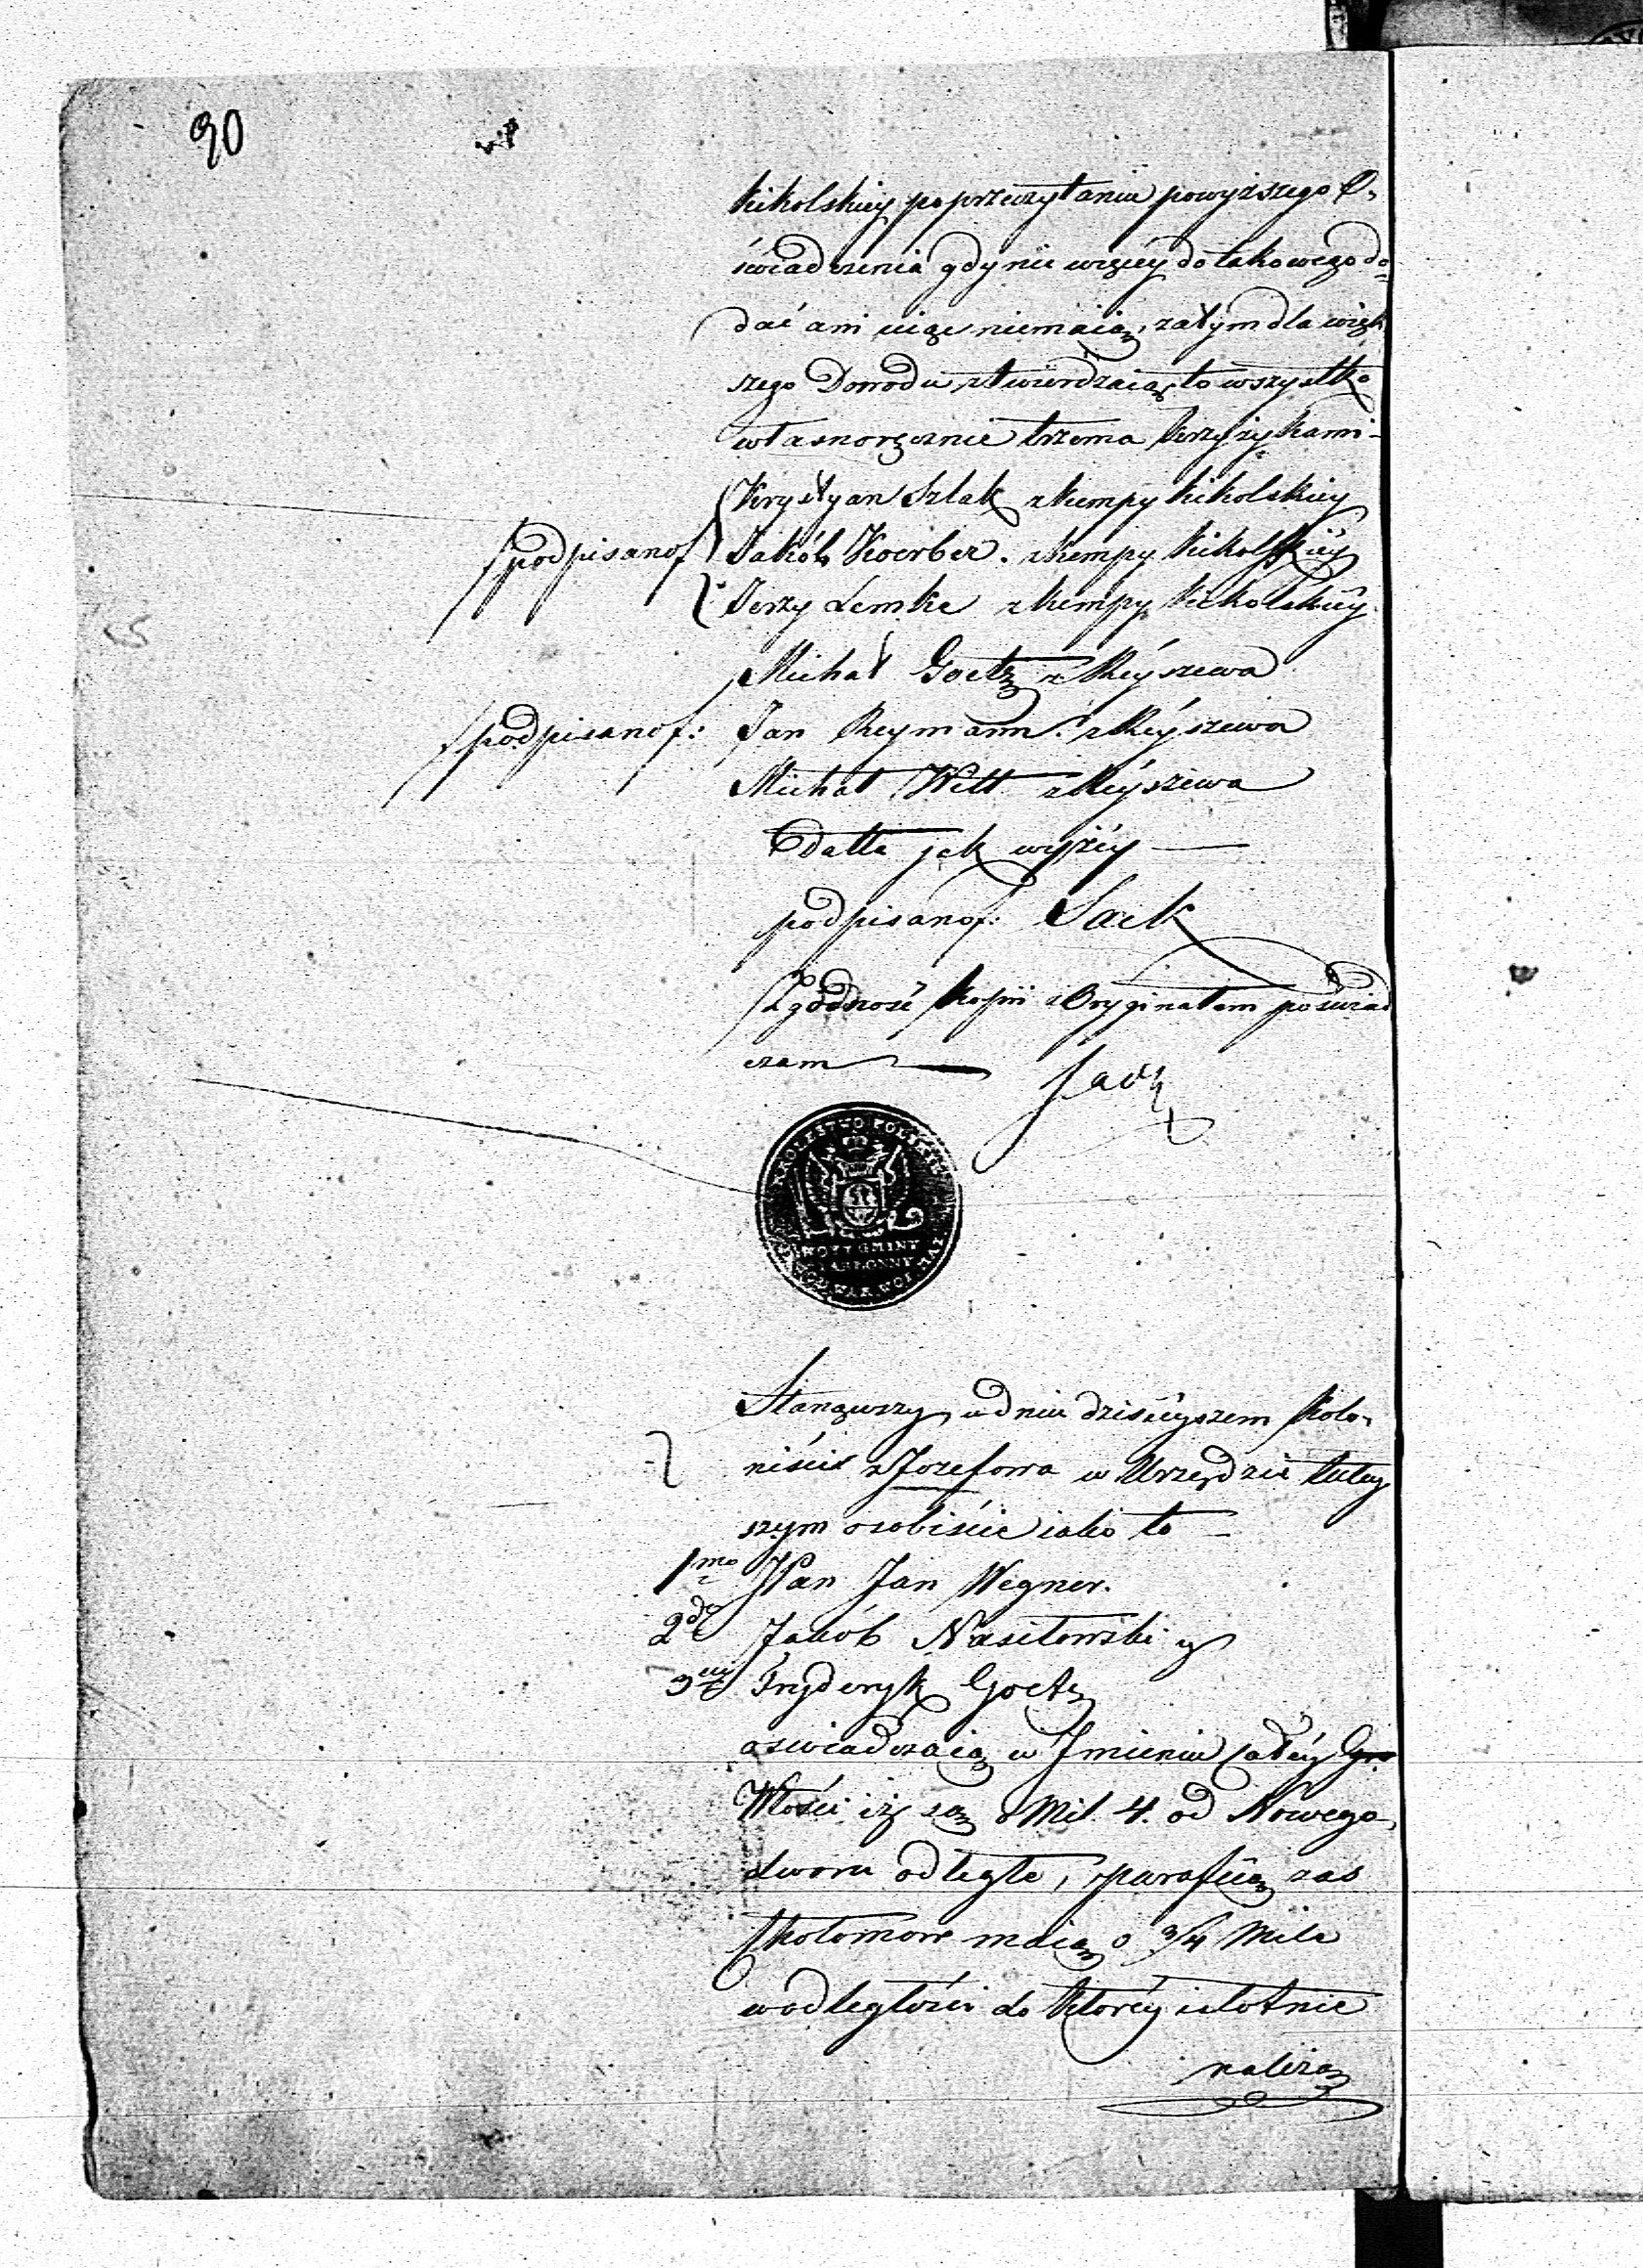 90
Kikolskiey po przeczytaniu powyższego O,
świadczenia gdy nic więcey do takowego do,
dać ani uiąc niemaią, zatym dla więk
szego Dowodu ztwierdzaią to wszystko
własnoręcznie trzema krzyżykami -
Krystyan Szlak z kempy kikolskiey
/podpisano/ Jakób Koerber. z kempy kikolskiey
Jerzy Lemke z kempy kikolskiey.
Michał Goetz z Reyszewa
/podpisano/: Jan Reymann. z Reyszewa
Michał Witt z Reyszewa
Datta jak wyżey —
podpisano/: Sack
Zgodność kopii z Oryginałem poświad
czam — Sack
KROLESTWO POLSKIE
WOYT GMINY
JABŁONNY
Stanąwszy w dniu dzisieyszem kolo,
niście z Jozefowa w Urzędzie tutey
szym osobiście iako to —
1mo Pan Jan Wegner.
2do Jakób Nasiłowski y
3tio Fryderyk Goetz
oświadczaią w Jmieniu całey Gro
Włości iż są o Mil 4. od Nowego,
dworu odległe, parafiią zas
maią o 3/4 Mile
w odległości do którey istotnie
należą